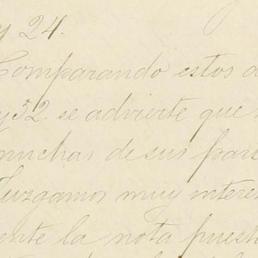 y 24.
Comparando estos
y 32 se advierte que
muchas de sus par
Juzgamos muy intere
ente la nota puest